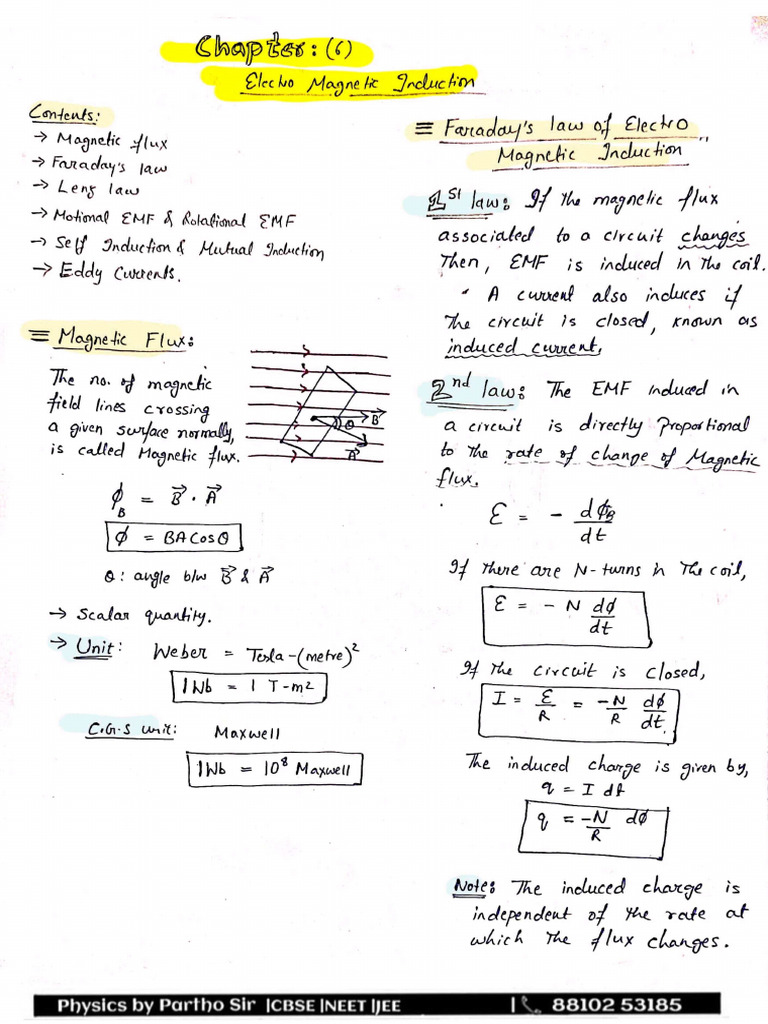 Chapter: (6)
Electro Magnetic Induction
Contents:
→ Magnetic flux
→ Faraday's law
→ Leng law
→ Motional EMF & Rotational EMF
→ Self Induction & Mutual Induction
→ Eddy Currents.
≡ Magnetic Flux:
The no. of magnetic
field lines crossing
a given surface normally,
is called Magnetic flux.
θ B⃗
A⃗
ϕ_B = B⃗ · A⃗
ϕ = BA Cosθ
θ: angle b/w B⃗ & A⃗
→ Scalar quantity.
→ Unit: Weber = Tesla-(metre)²
1Wb = 1 T-m²
C.G.S unit: Maxwell
1Wb = 10⁸ Maxwell
≡ Faraday's law of Electro
Magnetic Induction
1st law: If the magnetic flux
associated to a circuit changes
Then, EMF is induced in the coil.
• A current also induces if
The circuit is closed, known as
induced current.
2nd law: The EMF induced in
a circuit is directly proportional
to the rate of change of Magnetic
flux.
ε = - dϕ_B/dt
If there are N-turns in The coil,
ε = - N dϕ/dt
If the circuit is closed,
I = ε/R = -N/R dϕ/dt.
The induced charge is given by,
q = I dt
q = -N/R dϕ
Note: The induced charge is
independent of the rate at
which the flux changes.
Physics by Partho Sir |CBSE |NEET |JEE | 88102 53185